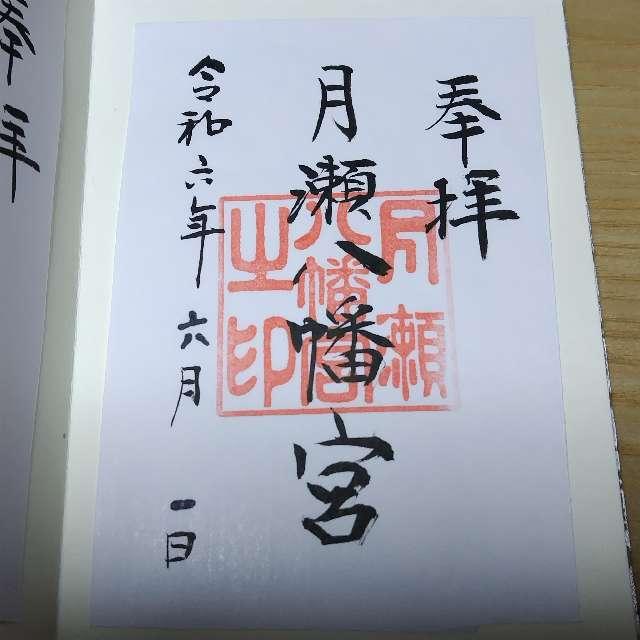 奉拝
月瀬八幡宮
令和六年六月一日
月瀬
八幡宮
之印
奉拝